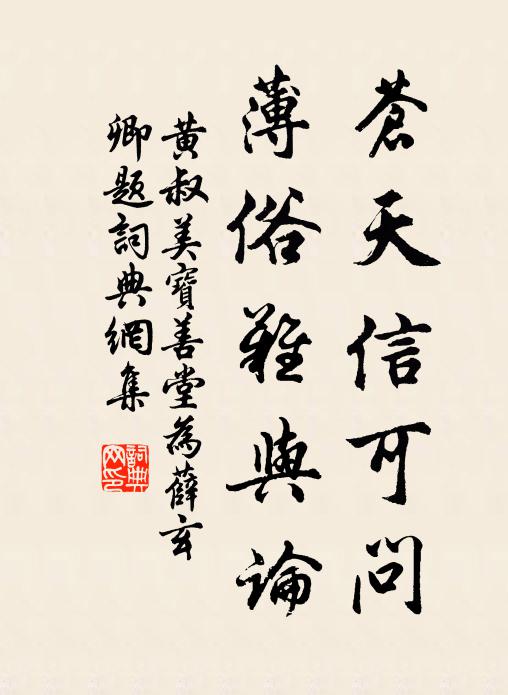 蒼天信可問
薄俗難與論
黄叔美寶善堂為薛玄
卿題詞典網集
詞典網印